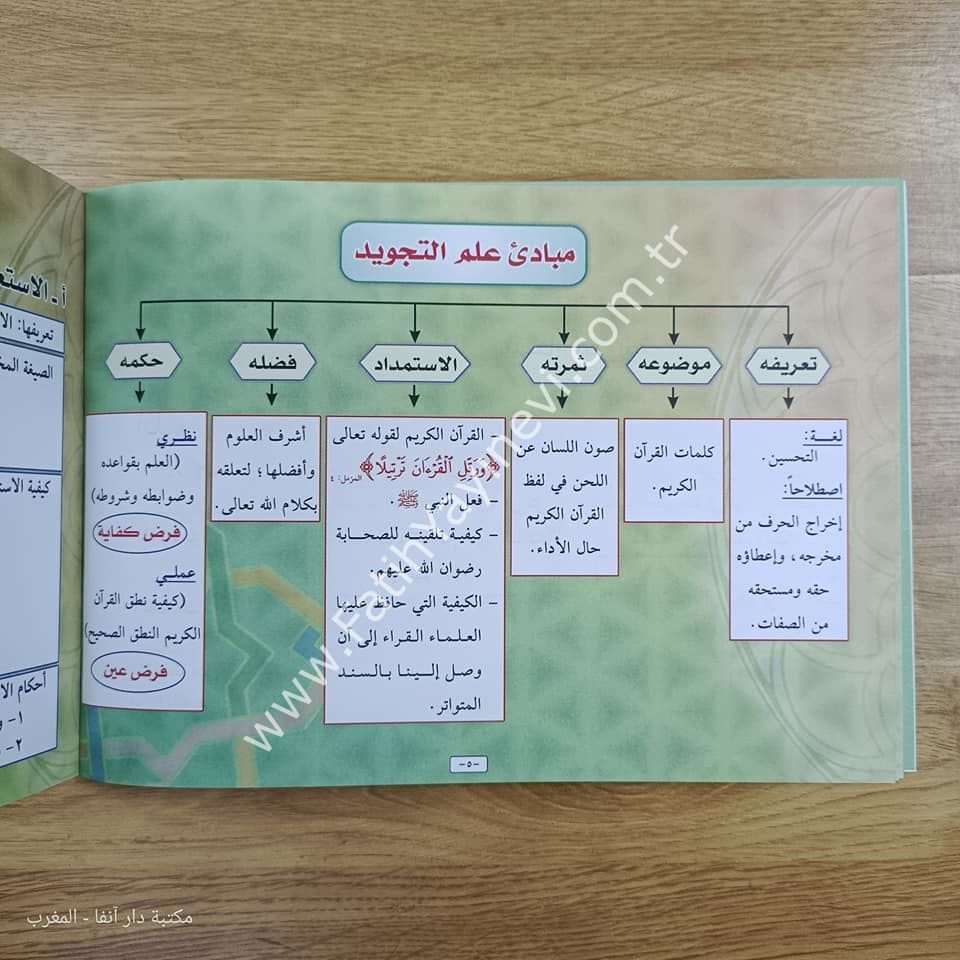 مبادئ علم التجويد
تعريفه
لغـــة:
التحسين.
اصطلاحاً:
إخراج الحرف من
مخرجه، وإعطاؤه
حقه ومستحقه
من الصفات.
موضوعه
كلمات القرآن
الكريم.
ثمرته
صون اللسان عن
اللحن في لفظ
القرآن الكريم
حال الأداء.
الاستمداد
- القرآن الكريم لقوله تعالى
﴿وَرَتِّلِ ٱلْقُرْءَانَ تَرْتِيلًا﴾ المزمل: ٤
- فعل النبي ﷺ.
- كيفية تلقينه للصحابة
رضوان الله عليهم.
- الكيفية التي حافظ عليها
العلماء القراء إلى أن
وصل إلينا بالسند
المتواتر.
فضله
أشرف العلوم
وأفضلها؛ لتعلقه
بكلام الله تعالى.
حكمه
نظري
(العلم بقواعده
وضوابطه وشروطه)
فرض كفاية
عملي
(كيفية نطق القرآن
الكريم النطق الصحيح)
فرض عين
-٥-
أ - الاستع
تعريفها: الا
الصيغة المخ
كيفية الاست
أحكام الا
١- و
٢-
www.Fatihyayinevi.com.tr
مكتبة دار آنفا - المغرب